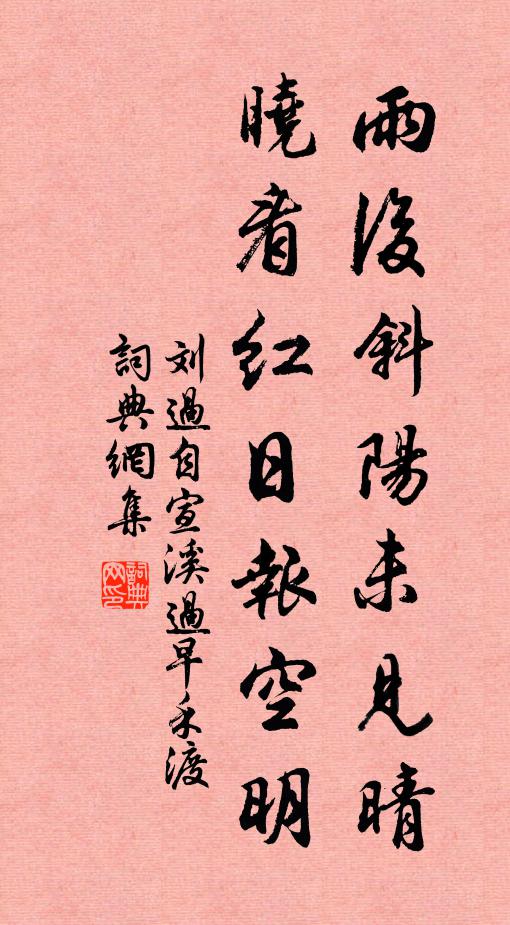 雨後斜陽未見晴
曉看紅日報空明
刘過自宣溪過早禾渡
詞典網集
詞典网印